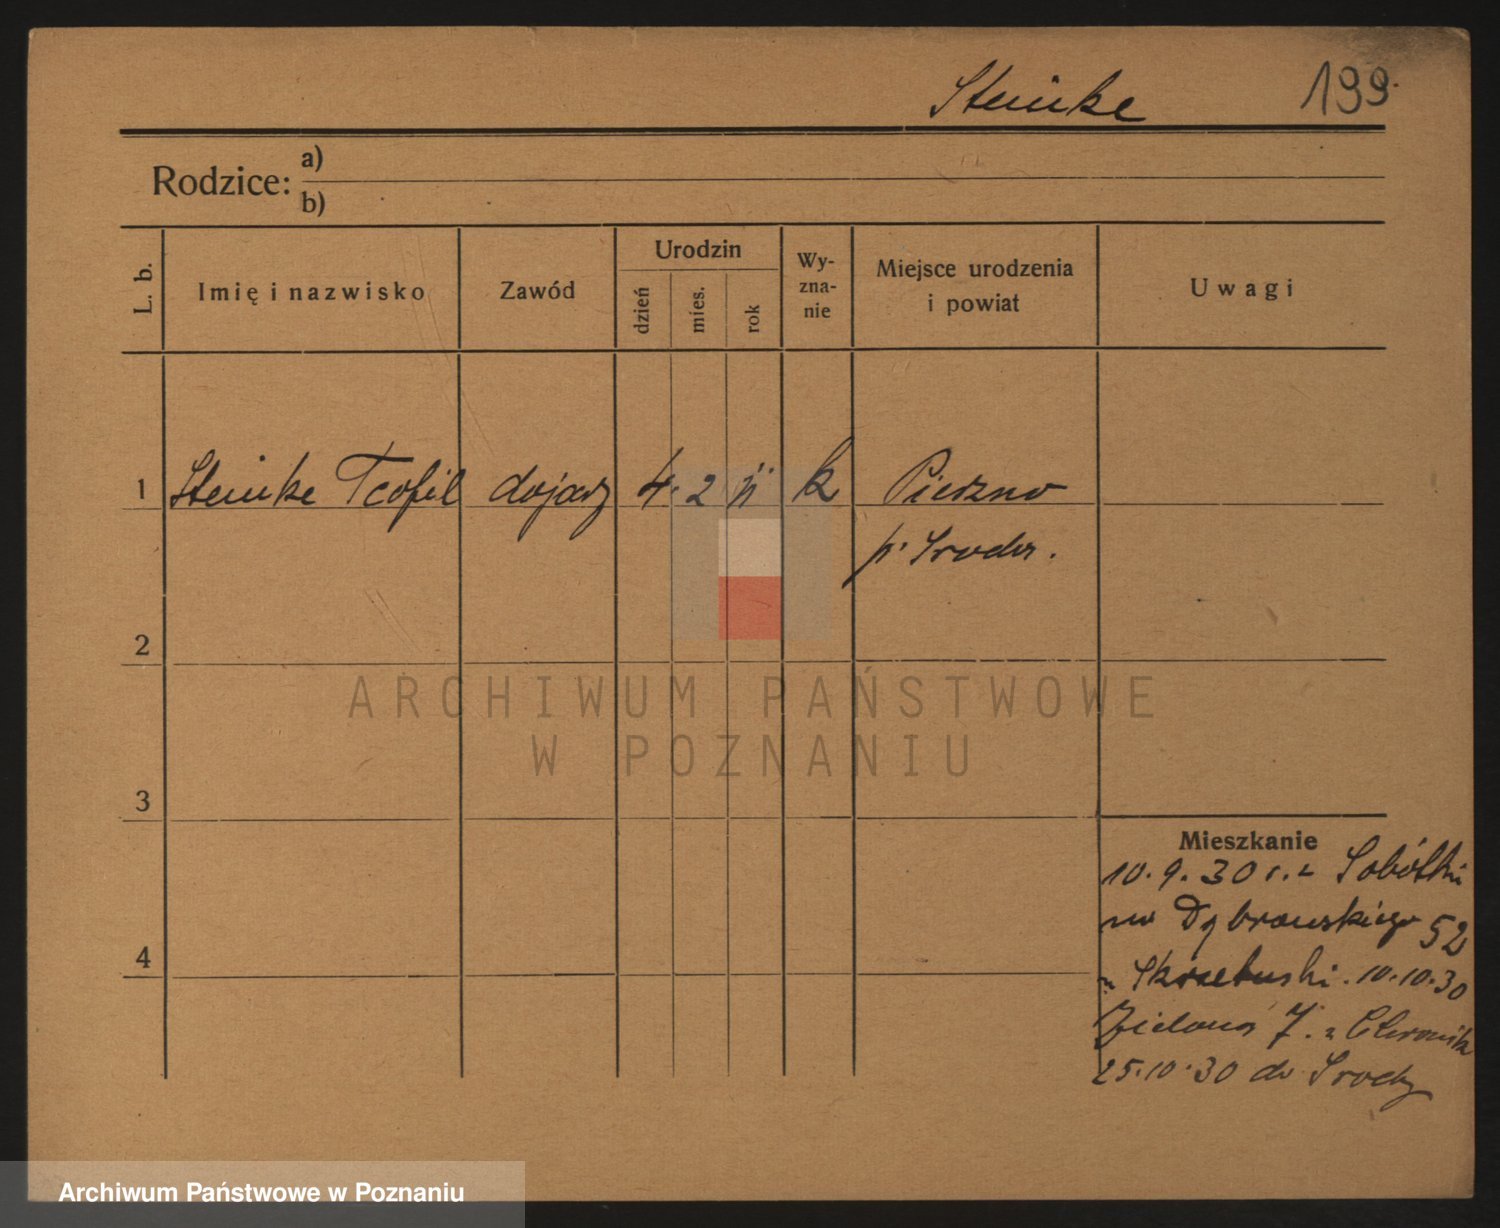 Steinke 199.
Rodzice: a)
b)
L. b. Imię i nazwisko Zawód Urodzin dzień mies. rok Wy-zna-nie Miejsce urodzenia i powiat Uwagi
1 Steinke Teofil dojarz 4. 2 11 k Pierzno
p. Sroda.
2
ARCHIWUM PAŃSTWOWE
W POZNANIU
3
Mieszkanie
10.9.30 r. z Sobótki
na Dąbrowskiego 52
4
u Skrzetuski. 10.10.30
Zielona 7. u
25.10.30 do Srody
Archiwum Państwowe w Poznaniu